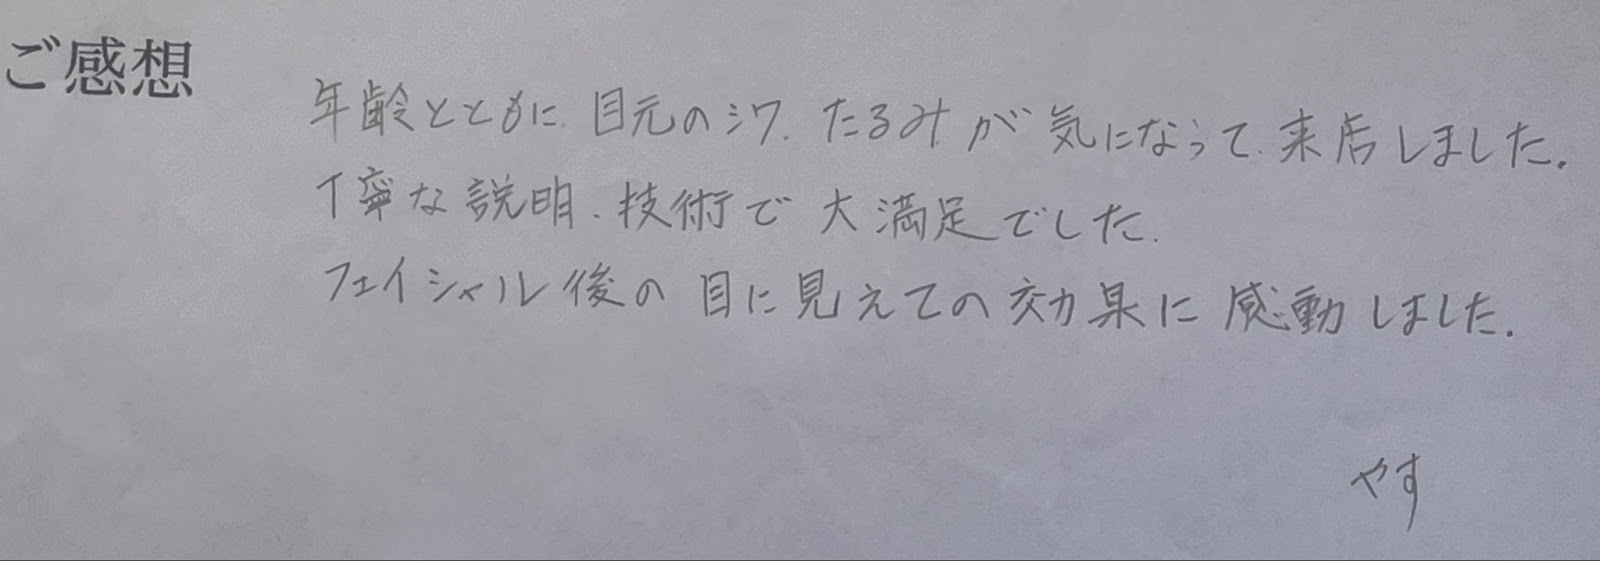 ご感想
年齢とともに、目元のシワ、たるみが気になって、来店しました。
丁寧な説明、技術で大満足でした。
フェイシャル後の目に見えての効果に感動しました。
やす